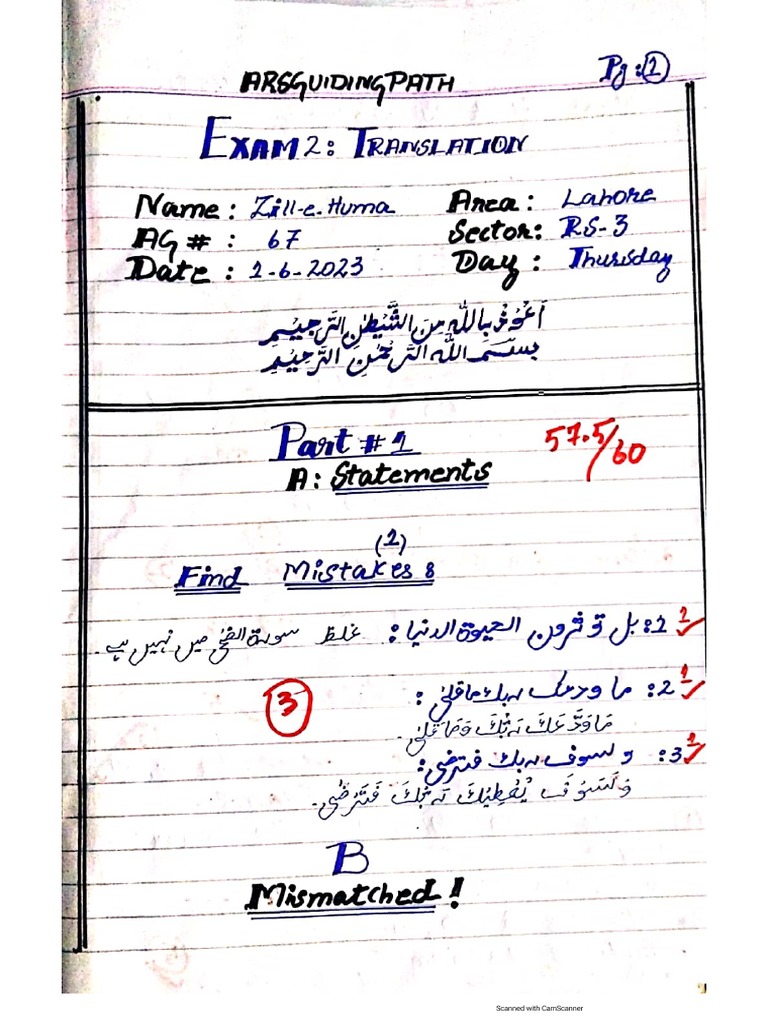 ARSGUIDINGPATH
Pg: 1
EXAM 2: TRANSLATION
Name: Zill-e-Huma Area: Lahore
AG #: 67 Sector: RS-3
Date: 1-6-2023 Day: Thursday
اَعُوْذُ بِاللّٰهِ مِنَ الشَّيْطٰنِ الرَّجِيْمِ
بِسْمِ اللّٰهِ الرَّحْمٰنِ الرَّحِيْمِ
Part # 1
57.5/60
A: Statements
(1)
Find Mistakes 8
1: بل تؤثرون الحيوة الدنيا: غلط سورة الضحٰی میں نہیں ہے۔
1
2: ما ودعک ربک ما قلیٰ:
1
3
مَا وَدَّعَكَ رَبُّكَ وَمَا قَلیٰ۔
3: و سوف ربک فترضیٰ:
1
وَلَسَوْفَ يُعْطِيْكَ رَبُّكَ فَتَرْضٰی۔
B
Mismatched!
Scanned with CamScanner